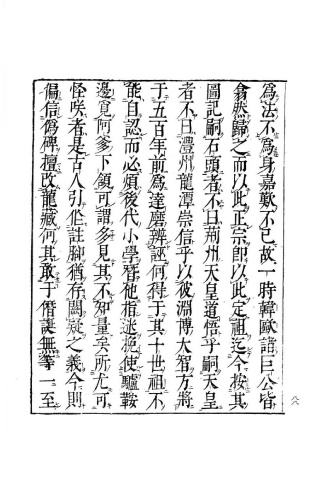 爲法不爲身嘉歎不已故一時韓歐諸巨公皆
翕然歸之而以此正宗卽以此定祖迄今按其
圖記嗣石頭者不曰荆州天皇道悟乎嗣天皇
者不曰澧州龍潭崇信乎以彼淵博大智方將
于五百年前爲達磨辨誣何得于其十世祖不
能自認而必煩後代小學替他指迷挽使驢鞍
邊覓阿爹下頷可謂多見其不知量矣所尤可
怪咲者是古人引佀註脚猶存闕疑之義今則
偏信僞碑擅改龍藏何其敢于僭誕無等一至
八八